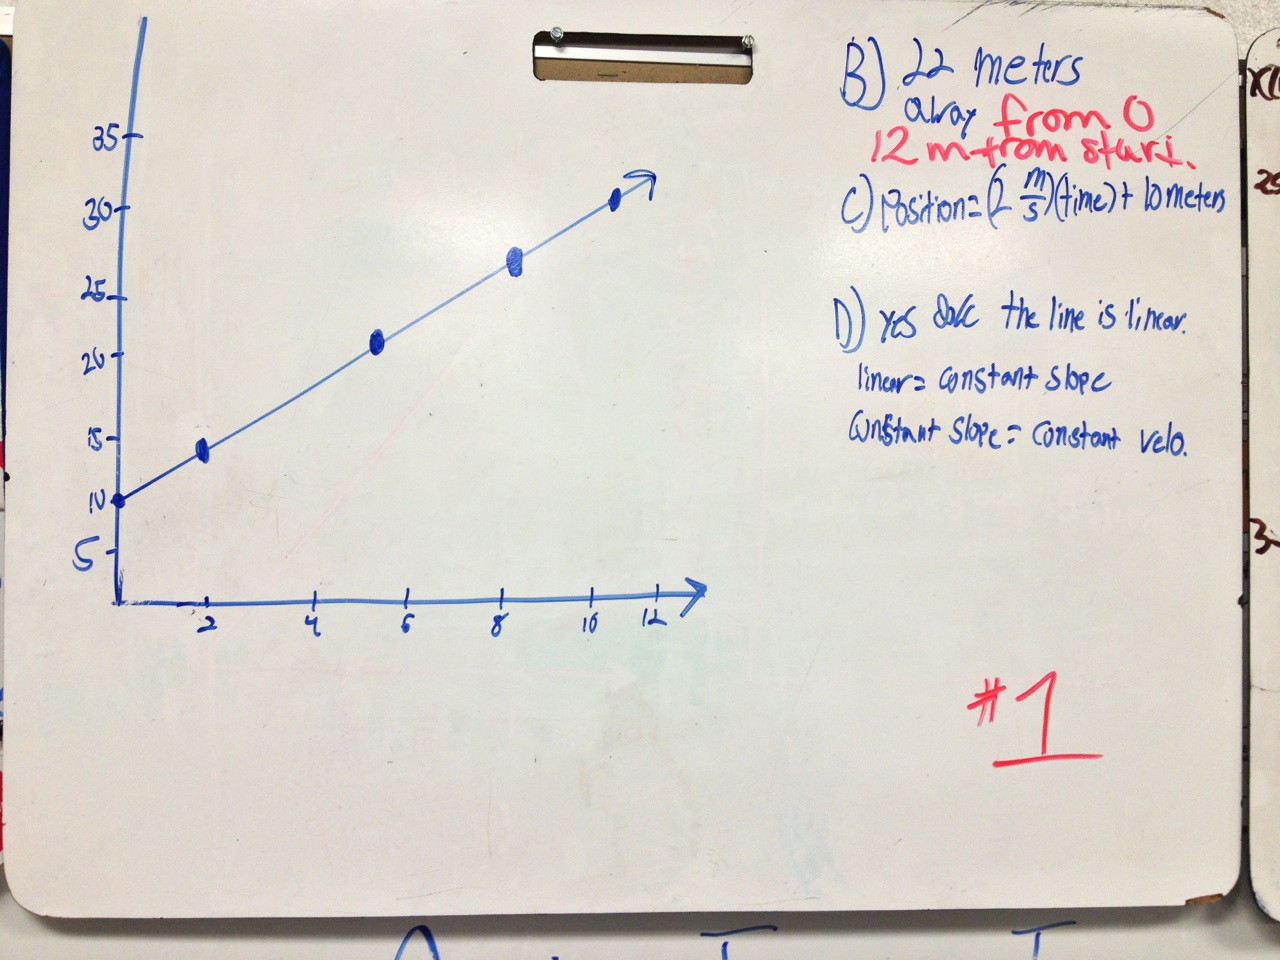 35
30
25
20
15
10
5
2 4 6 8 10 12
B) 22 meters
away from 0
12 m from start.
C) Position = (2 m/s)(time) + 10 meters
D) yes the line is linear.
linear = constant slope
constant slope = constant velo.
#1